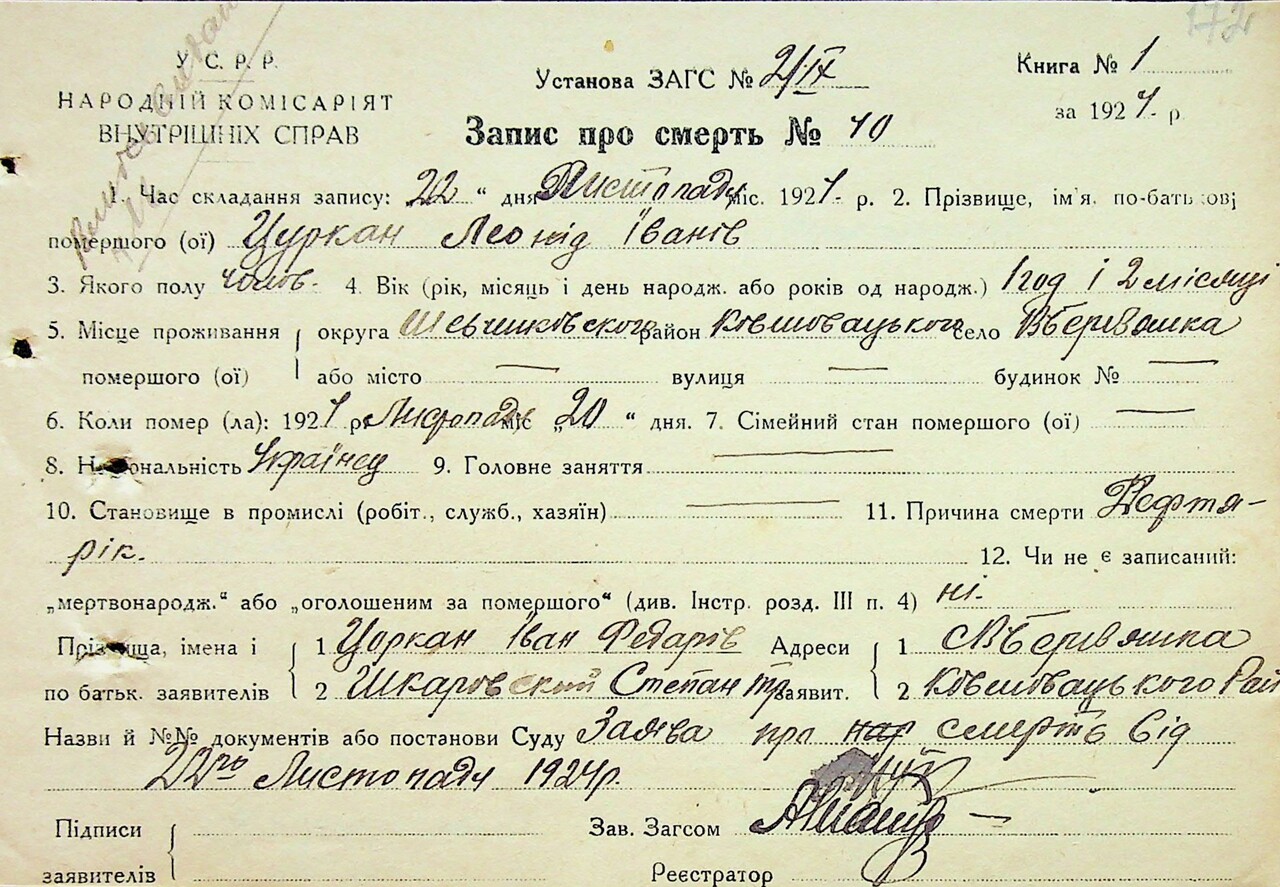 172
У. С. Р. Р.
НАРОДНІЙ КОМІСАРІЯТ
ВНУТРІШНІХ СПРАВ
Установа ЗАГС № 2/ІХ
Книга № 1
за 1924 р.
Запис про смерть № 40
1. Час складання запису: 22 “ дня Листопаду міс. 1924 р. 2. Прізвище, ім'я, по-батькові
помершого (ої) Цуркан Леонід Іванів
3. Якого полу чолов. 4. Вік (рік, місяць і день народж. або років од народж.) 1 год і 2 місяці
5. Місце проживання округа Шевчинковского район Ковшовацького село Вберівошка
помершого (ої) або місто — вулиця — будинок № —
6. Коли помер (ла): 1924 р. Листопаду міс „20 “ дня. 7. Сімейний стан помершого (ої) —
8. Національність Українец 9. Головне заняття —
10. Становище в промислі (робіт., служб., хазяїн) — 11. Причина смерти Дефтя-
рік. 12. Чи не є записаний:
„мертвонародж.“ або „оголошеним за помершого“ (див. Інстр. розд. III п. 4) ні.
Прізвища, імена і 1 Цуркан Іван Федарів Адреси 1
по батьк. заявителів 2 Шкаровский Степан заявит. 2 Ковшовацького Рай
Назви й №№ документів або постанови Суду Заява про нар смерть від
22го Листопаду 1924 р.
Підписи
заявителів
Зав. Загсом
Реєстратор